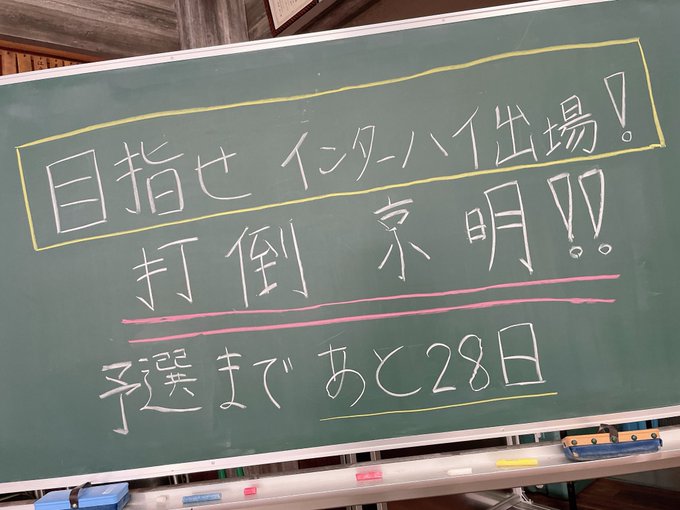 目指せ インターハイ出場!
打倒 京明!!
予選まで あと28日